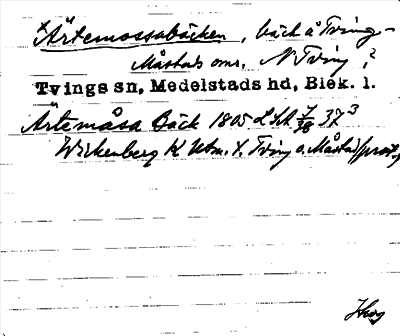 *Ärtemossabäcken, bäck å Tving-
Måstads oms., N Tving, ?
Tvings sn, Medelstads hd, Blek. l.
Ärtemåsa Bäck 1805 LSA 7/38 37³
Wickenberg K Utm. t. Tving o. Måstad/prot.